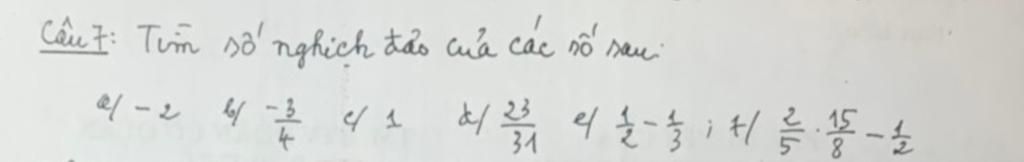 Câu 7: Tìm số nghịch đảo của các số sau:
a/ -2 b/ \frac{-3}{4} c/ 1 d/ \frac{23}{31} e/ \frac{1}{2} - \frac{1}{3} ; f/ \frac{2}{5} . \frac{15}{8} - \frac{1}{2}